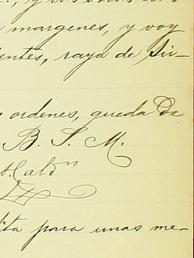 margenes, y voy
entes, raya de Sir-
ordenes, queda De
B. S. M.
ita para unas me-